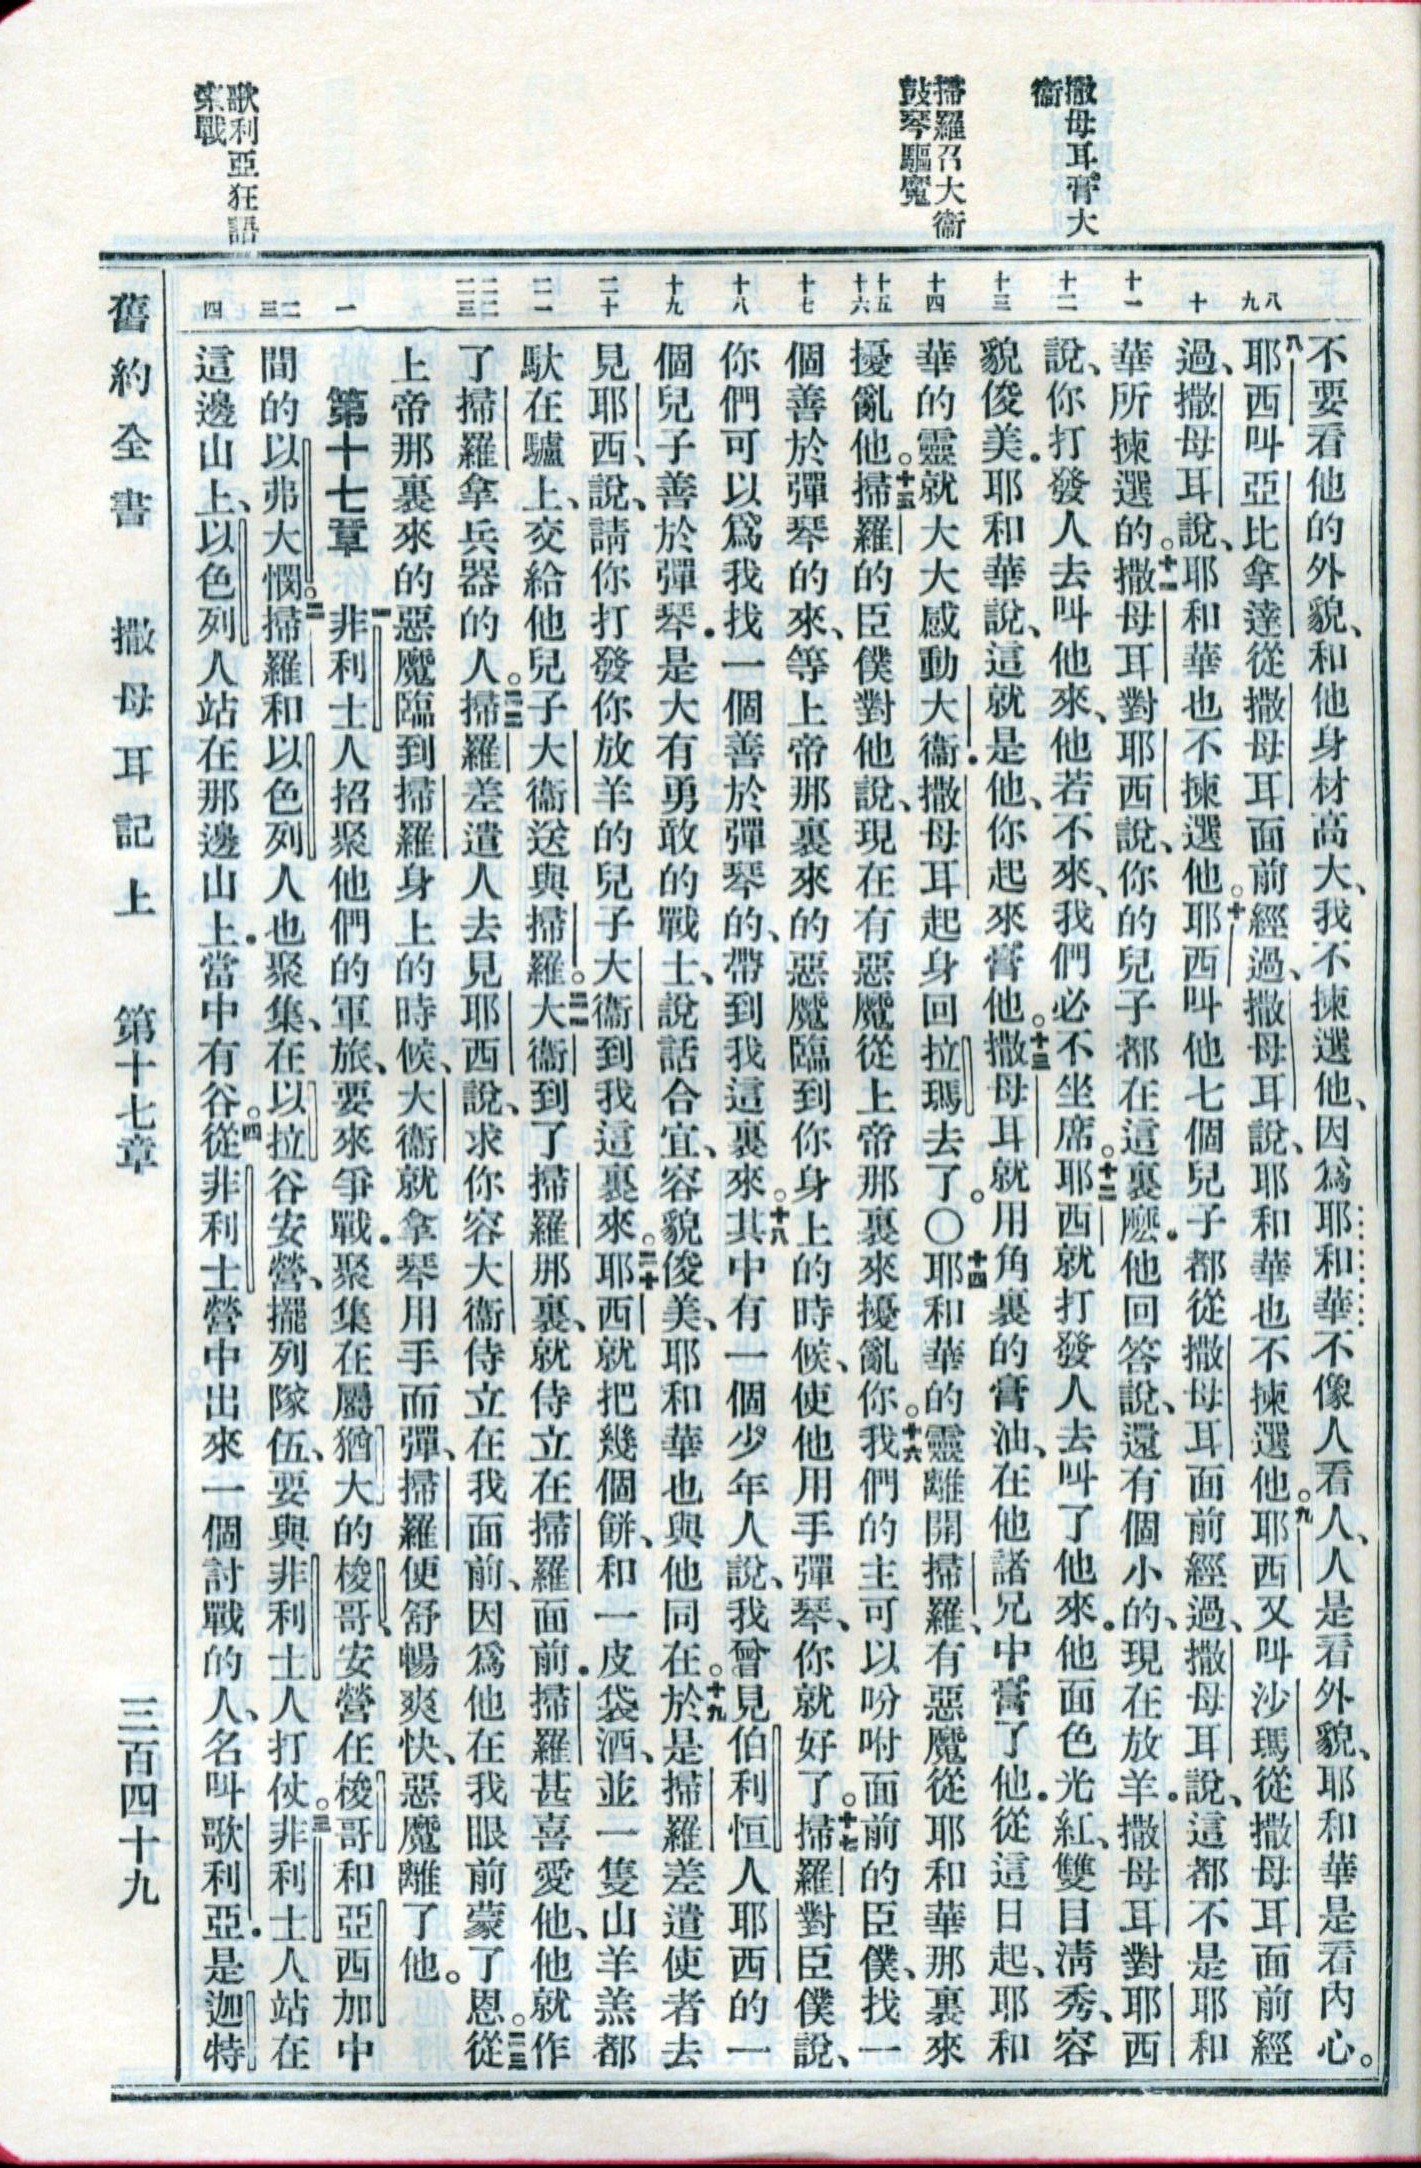 撒母耳膏大
衞
掃羅召大衞
鼓琴驅魔
歌利亞狂語
索戰
八
九
十
十一
十二
十三
十四
十五
十六
十七
十八
十九
二十
二一
二二
二三
一
二
三
四
不要看他的外貌、和他身材高大、我不揀選他、因爲耶和華不像人看人、人是看外貌、耶和華是看內心。
八耶西叫亞比拿達從撒母耳面前經過、撒母耳說、耶和華也不揀選他。九耶西又叫沙瑪從撒母耳面前經
過、撒母耳說、耶和華也不揀選他。十耶西叫他七個兒子都從撒母耳面前經過、撒母耳說、這都不是耶和
華所揀選的。十一撒母耳對耶西說、你的兒子都在這裏麽.他回答說、還有個小的、現在放羊.撒母耳對耶西
說、你打發人去叫他來、他若不來、我們必不坐席。十二耶西就打發人去叫了他來.他面色光紅、雙目淸秀、容
貌俊美.耶和華說、這就是他、你起來膏他。十三撒母耳就用角裏的膏油、在他諸兄中膏了他.從這日起、耶和
華的靈就大大感動大衞.撒母耳起身回拉瑪去了。〇十四耶和華的靈離開掃羅、有惡魔從耶和華那裏來
擾亂他。十五掃羅的臣僕對他說、現在有惡魔從上帝那裏來擾亂你。十六我們的主可以吩咐面前的臣僕、找一
個善於彈琴的來、等上帝那裏來的惡魔臨到你身上的時候、使他用手彈琴、你就好了。十七掃羅對臣僕說、
你們可以爲我找一個善於彈琴的、帶到我這裏來。十八其中有一個少年人說、我曾見伯利恒人耶西的一
個兒子善於彈琴.是大有勇敢的戰士、說話合宜、容貌俊美、耶和華也與他同在。十九於是掃羅差遣使者去
見耶西、說、請你打發你放羊的兒子大衞到我這裏來。二十耶西就把幾個餅、和一皮袋酒、並一隻山羊羔都
馱在驢上、交給他兒子大衞送與掃羅。二一大衞到了掃羅那裏、就侍立在掃羅面前.掃羅甚喜愛他、他就作
了掃羅拿兵器的人。二二掃羅差遣人去見耶西說、求你容大衞侍立在我面前、因爲他在我眼前蒙了恩。二三從
上帝那裏來的惡魔臨到掃羅身上的時候、大衞就拿琴用手而彈、掃羅便舒暢爽快、惡魔離了他。
第十七章　一非利士人招聚他們的軍旅、要來爭戰.聚集在屬猶大的梭哥、安營在梭哥和亞西加中
間的以弗大憫。二掃羅和以色列人也聚集、在以拉谷安營、擺列隊伍、要與非利士人打仗。三非利士人站在
這邊山上、以色列人站在那邊山上.當中有谷。四從非利士營中出來一個討戰的人、名叫歌利亞.是迦特
舊約全書　撒母耳記上　第十七章　三百四十九